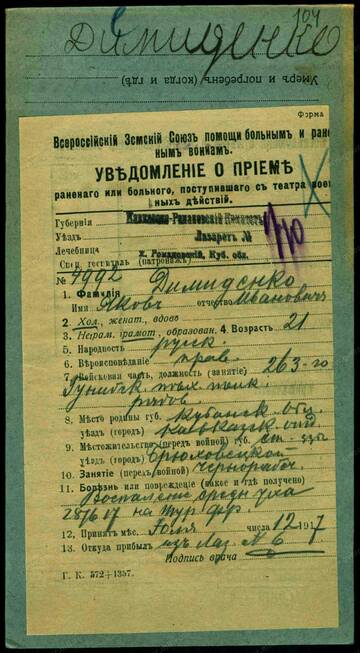 104
Димиденко
Умеръ и погребенъ (когда и гдѣ)
Форма
Всероссійскій Земскій Союзъ помощи больнымъ и ране
нымъ воинамъ.
УВѢДОМЛЕНІЕ О ПРІЕМѢ
раненаго или больного, поступившаго съ театра вое
ныхъ дѣйствій.
Губернія
Уѣздъ Лазаретъ №
Лечебница х. Романовскій, Куб. обл.
Спец. госпиталь (патронажъ)
№ 7992
1. Фамилія Димиденко
Имя Яковъ отчество Ивановичъ
2. Хол., женат., вдовъ
3. Неграм., грамот., образован. 4. Возрастъ 21
5. Народность русск.
6. Вѣроисповѣданіе прав.
7. Войсковая часть, должность (занятіе) 263-го
Гуниб. полк
рядов.
8. Мѣсто родины губ. Кубанск. обл.
уѣзд (город) Кавказск. отд.
9. Мѣстожительство (передъ войной) губ. ст-ца
уѣзд (город) Брюховецкой
10. Занятіе (перед войной) чернорабоч.
11. Болѣзнь или поврежденіе (какое и гдѣ получено)
Воспаленіе средн. уха
25/6 17 на Тур. фр.
12. Принятъ мѣс. Іюля числа 12 1917
13. Откуда прибылъ изъ Лаз. № 6
Подпись врача
Г. К. 572+1357.